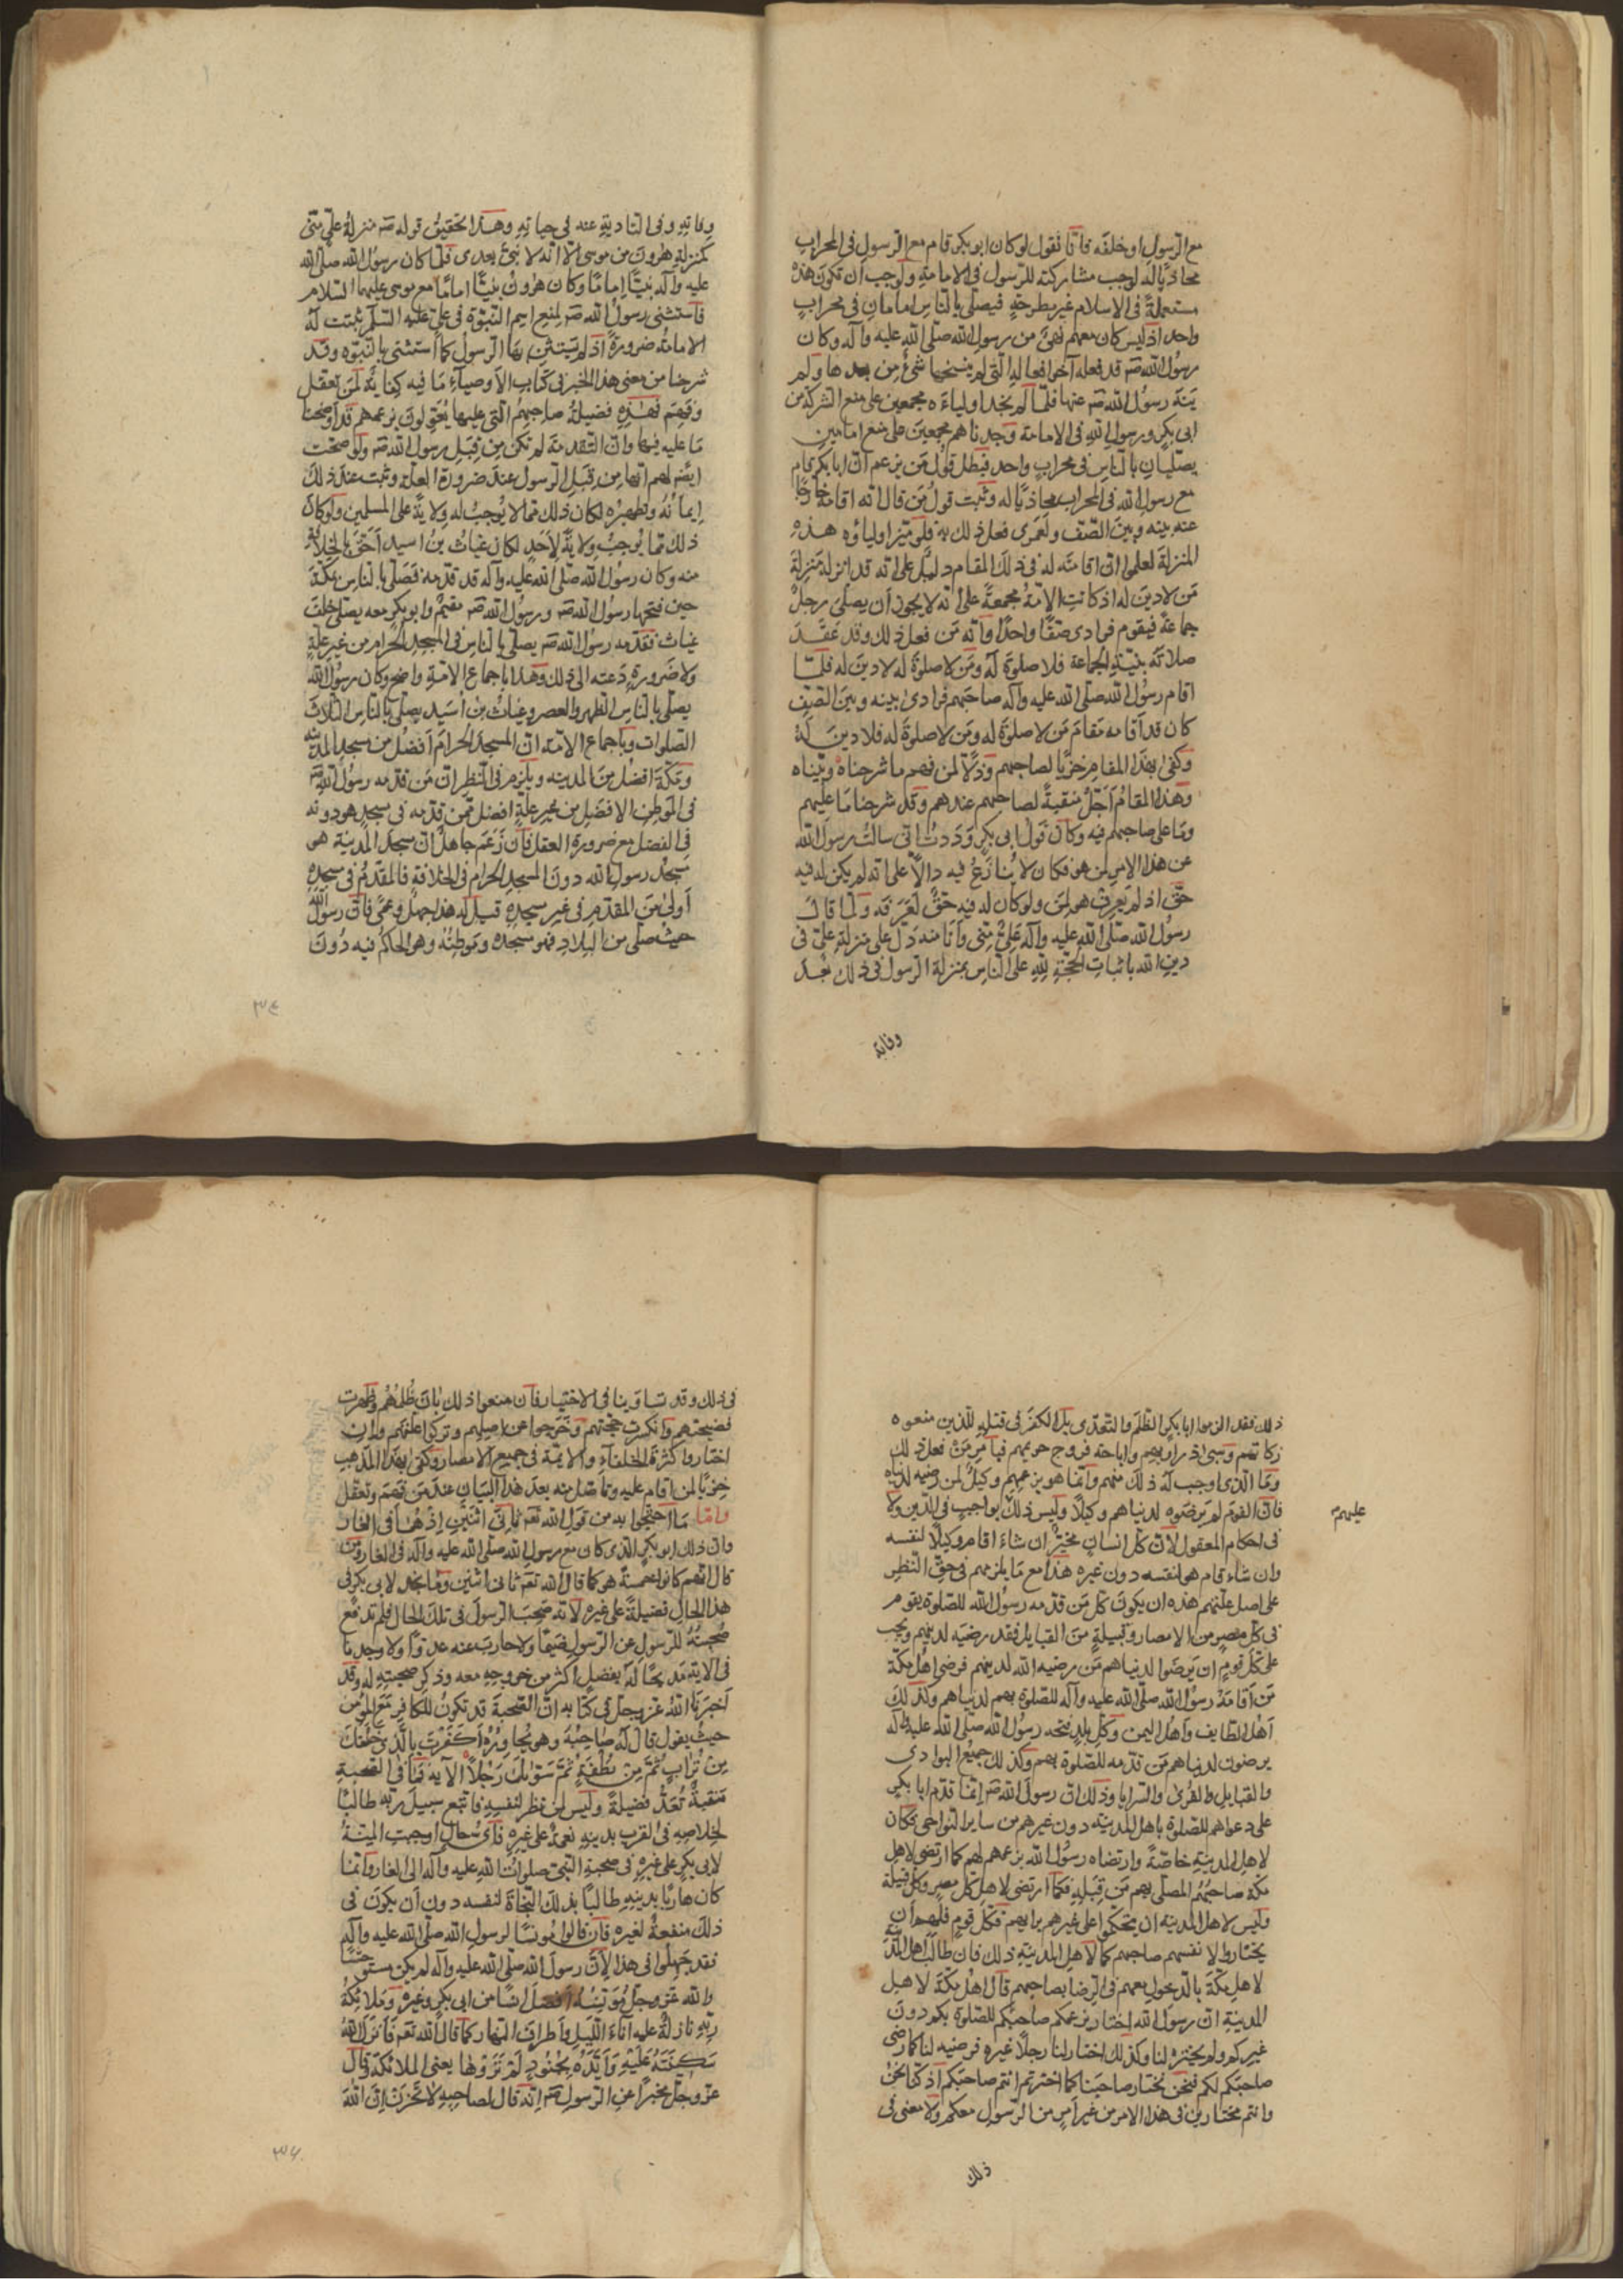 مع الرسول او خلفه فانا نقول لو كان ابو بكر قام مع الرسول فى المحراب
محاذيًا له لوجب مشاركته للرسول فى الامامة ولوجب ان تكون هذه
مستعملة فى الاسلام غير مطرحة فيصلى بالناس امامان فى محراب
واحد اذ ليس كان معهم نهى من رسول الله صلى الله عليه وآله وكان
رسول الله صَ قد فعله آخر افعاله التى لم ينسخها شئ من بعدها ولم
ينه رسول الله صَ عنها فلما لم نجد اولياءه مجمعين على منع الشركة من
ابى بكر ورسول الله فى الامامة وجدناهم مجمعين على منع امامين
يصليان بالناس فى محراب واحد فبطل قول من يزعم ان ابا بكر قام
مع رسول الله فى المحراب محاذيًا له وثبت قول من قال انه اقامه خارجًا
عنه بينه وبين الصف ولعمرى فعل ذلك به فلو ميز اولياؤه هذه
المنزلة لعلموا ان اقامته له فى ذلك المقام دليل على انه قد انزله منزلة
من لا دين له اذ كانت الامة مجمعة على انه لا يجوز ان يصلى رجل
جماعة فيقوم فرادى صفًا واحدًا وانه من فعل ذلك وقد عقد
صلاته بنية الجماعة فلا صلوة له ومن لا صلوة له لا دين له فلما
اقام رسول الله صلى الله عليه وآله صاحبهم فرادى بينه وبين الصف
كان قد اقامه مقام من لا صلوة له ومن لا صلوة له فلا دين له
وكفى بهذا المقام خزيًا لصاحبهم وذلًا لمن فهم ما شرحناه وبيناه
وهذا المقام اجل منقبة لصاحبهم عندهم وقد شرحنا ما عليهم
وما على صاحبهم فيه وكان قول ابى بكر وددت انى سالت رسول الله
عن هذا الامر لمن هو فكان لا ينازع فيه دالًا على انه لم يكن له فيه
حق اذ لم يعرف هو لمن ولو كان له فيه حق لعرفه ولما قال
رسول الله صلى الله عليه وآله على منى وانا منه دل على منزلة على فى
دين الله باثبات الحجة لله على الناس بمنزلة الرسول فى ذلك بعد
وفاته
وفاته وفى التادية عنه فى حياته وهذا تحقيق قوله صَ منزلة على منى
كمنزلة هرون من موسى الا انه لا نبى بعدى فلما كان رسول الله صلى الله
عليه وآله نبيًا امامًا وكان هرون نبيًا امامًا مع موسى عليهما السلام
فاستثنى رسول الله صَ لمنع اسم النبوة فى على عليه السلم ثبتت له
الامامة ضرورة اذ لم يستثن بها الرسول كما استثنى بالنبوة وقد
شرحنا من معنى هذا الخبر فى كتاب الاوصياء ما فيه كفاية لمن تعقل
وفهم فهذه فضيلة صاحبهم التى عليها يعولون بزعمهم قد اوضحنا
ما عليه فيها وان التقدمة لم تكن من قبل رسول الله صَ ولو صحت
ايضًا لهم انها من قبل الرسول عند ضرورة العلة وثبت عند ذلك
ايمانه وتطهيره لكان ذلك مما لا يوجب له ولاية على المسلمين ولو كان
ذلك مما يوجب ولاية لاحد لكان غياث بن اسيد احق بالخلافة
منه وكان رسول الله صلى الله عليه وآله قد قدمه فصلى بالناس بمكة
حين فتحها رسول الله صَ ورسول الله صَ مقيم وابو بكر معه يصلى خلف
غياث فقدمه رسول الله صَ يصلى بالناس فى المسجد الحرام من غير علة
ولا ضرورة دعته الى ذلك وهذا باجماع الامة واضح وكان رسول الله
يصلى بالناس الظهر والعصر وغياث بن اسيد يصلى بالناس الثلاث
الصلوات وباجماع الامة ان المسجد الحرام افضل من مسجد المدينة
ومكة افضل من المدينة ويلزم فى النظر ان من قدمه رسول الله صَ
فى الموطن الافضل من غير علة افضل ممن قدمه فى مسجد هو دونه
فى الفضل مع ضرورة العقل فان زعم جاهل ان مسجد المدينة هو
مسجد رسول الله دون المسجد الحرام فى الخلافة فالمقدم فى مسجده
اولى من المقدم فى غير مسجده قيل له هذا جهل وعمى فان رسول الله
حيث صلى من البلاد فهو مسجده وموطنه وهو الحاكم فيه دون
٣٤
ذلك فقد الزموا ابا بكر الظلم والتعدى بل الكفر فى قتله للذين منعوه
زكاتهم وسبى ذراريهم واباحة فروج حريمهم فبامر من فعل ذلك
وما الذى اوجب له ذلك منهم وانما هو بزعمهم وكيل لمن رضيه لدنياه
فان القوم لم يرضوه لدنياهم وكيلًا وليس ذلك بواجب فى الدين ولا
عليهم
فى احكام المعقول لان كل انسان مخير ان شاء اقام وكيلًا لنفسه
وان شاء قام هو لنفسه دون غيره هذا مع ما يلزمهم فى حق النظر
على اصل علتهم هذه ان يكون كل من قدمه رسول الله للصلوة بقوم
فى كل مصر من الامصار وقبيلة من القبايل فقد رضيه لدينهم ويجب
على كل قوم ان يرضوا لدنياهم من رضيه الله لدينهم فرضى اهل مكة
من اقامه رسول الله صلى الله عليه وآله للصلوة بهم لدنياهم وكذلك
اهل الطايف واهل اليمن وكل بلد فتحه رسول الله صلى الله عليه وآله
يرضون لدنياهم من قدمه للصلوة بهم وكذلك جميع البوادى
والقبايل والقرى والسرايا وذلك ان رسول الله صَ انما قدم ابا بكر
على دعواهم للصلوة باهل المدينة دون غيرهم من ساير النواحى فكان
لاهل المدينة خاصة وارتضاه رسول الله بزعمهم لهم كما ارتضى لاهل
مكة صاحبهم المصلى بهم من قبله وكما ارتضى لاهل كل مصر وكل قبيلة
وليس لاهل المدينة ان يتحكموا على غيرهم برايهم فكل قوم فلهم ان
يختاروا لانفسهم صاحبهم كما لاهل المدينة ذلك فان طالب اهل المدينة
لاهل مكة بالدخول معهم فى الرضا بصاحبهم قال اهل مكة لاهل
المدينة ان رسول الله اختار بزعمكم صاحبكم للصلوة بكم دون
غيركم ولم يختره لنا وكذلك اختار لنا رجلًا غيره فرضيه لنا كما رضى
صاحبكم لكم فنحن نختار صاحبنا كما اخترتم انتم صاحبكم اذ كنا نحن
وانتم مختارين فى هذا الامر من غير امر من الرسول معكم ولا معنى فى
ذلك
فى ذلك وقد تساوينا فى الاختيار فان منعوا ذلك بان ظلمهم وظهرت
فضيحتهم وانكسرت حجتهم وخرجوا عن اصلهم وتركوا علتهم وان
اختاروا كثرة الخلفاء والايمة فى جميع الامصار وكفى بهذا المذهب
خزيًا لمن اقام عليه وناضل عنه بعد هذا البيان عند من فهم وتعقل
واما ما احتجوا به من قول الله تعَ ثانى اثنين اذ هما فى الغار
وان ذلك ابو بكر الذى كان مع رسول الله صلى الله عليه وآله فى الغار ومن
قال انهم كانوا خمسة هو كما قال الله تعَ ثانى اثنين وما نجد لابى بكر فى
هذا الحال فضيلة على غيره لانه صحب الرسول فى تلك الحال فلم تدفع
صحبته للرسول عن الرسول ضيمًا ولا حارب عنه عدوًا ولا وجدنا
فى الاية مدحًا له بفضل اكثر من خروجه معه وذكر صحبته له وقد
اخبرنا الله عز وجل فى كتابه ان الصحبة قد تكون للكافر مع المؤمن
حيث يقول قال له صاحبه وهو يحاوره اكفرت بالذى خلقك
من تراب ثم من نطفة ثم سويك رجلًا الآية فما فى الصحبة
منقبة تعد فضيلة وليس لمن نظر لنفسه فاتبع سبيل ربه طالبًا
لخلاصه فى القرب بدينه نعمة على غيره فاى حال اوجبت الميتة
لابى بكر على غيره فى صحبة النبى صلوات الله عليه وآله الى الغار وانما
كان هاربًا بدينه طالبًا بذلك النجاة لنفسه دون ان يكون فى
ذلك منفعة لغيره فان قالوا مونسًا لرسول الله صلى الله عليه وآله
فقد جهلوا فى هذا لان رسول الله صلى الله عليه وآله لم يكن مستوحشًا
والله عز وجل مونسه افضل انسًا من ابى بكر وغيره وملائكة
ربه نازلة عليه آناء الليل واطراف النهار كما قال الله تعَ فانزل الله
سكينته عليه وايده بجنود لم تروها يعنى الملائكة وقال
عز وجل مخبرًا عن الرسول صَ انه قال لصاحبه لا تحزن ان الله